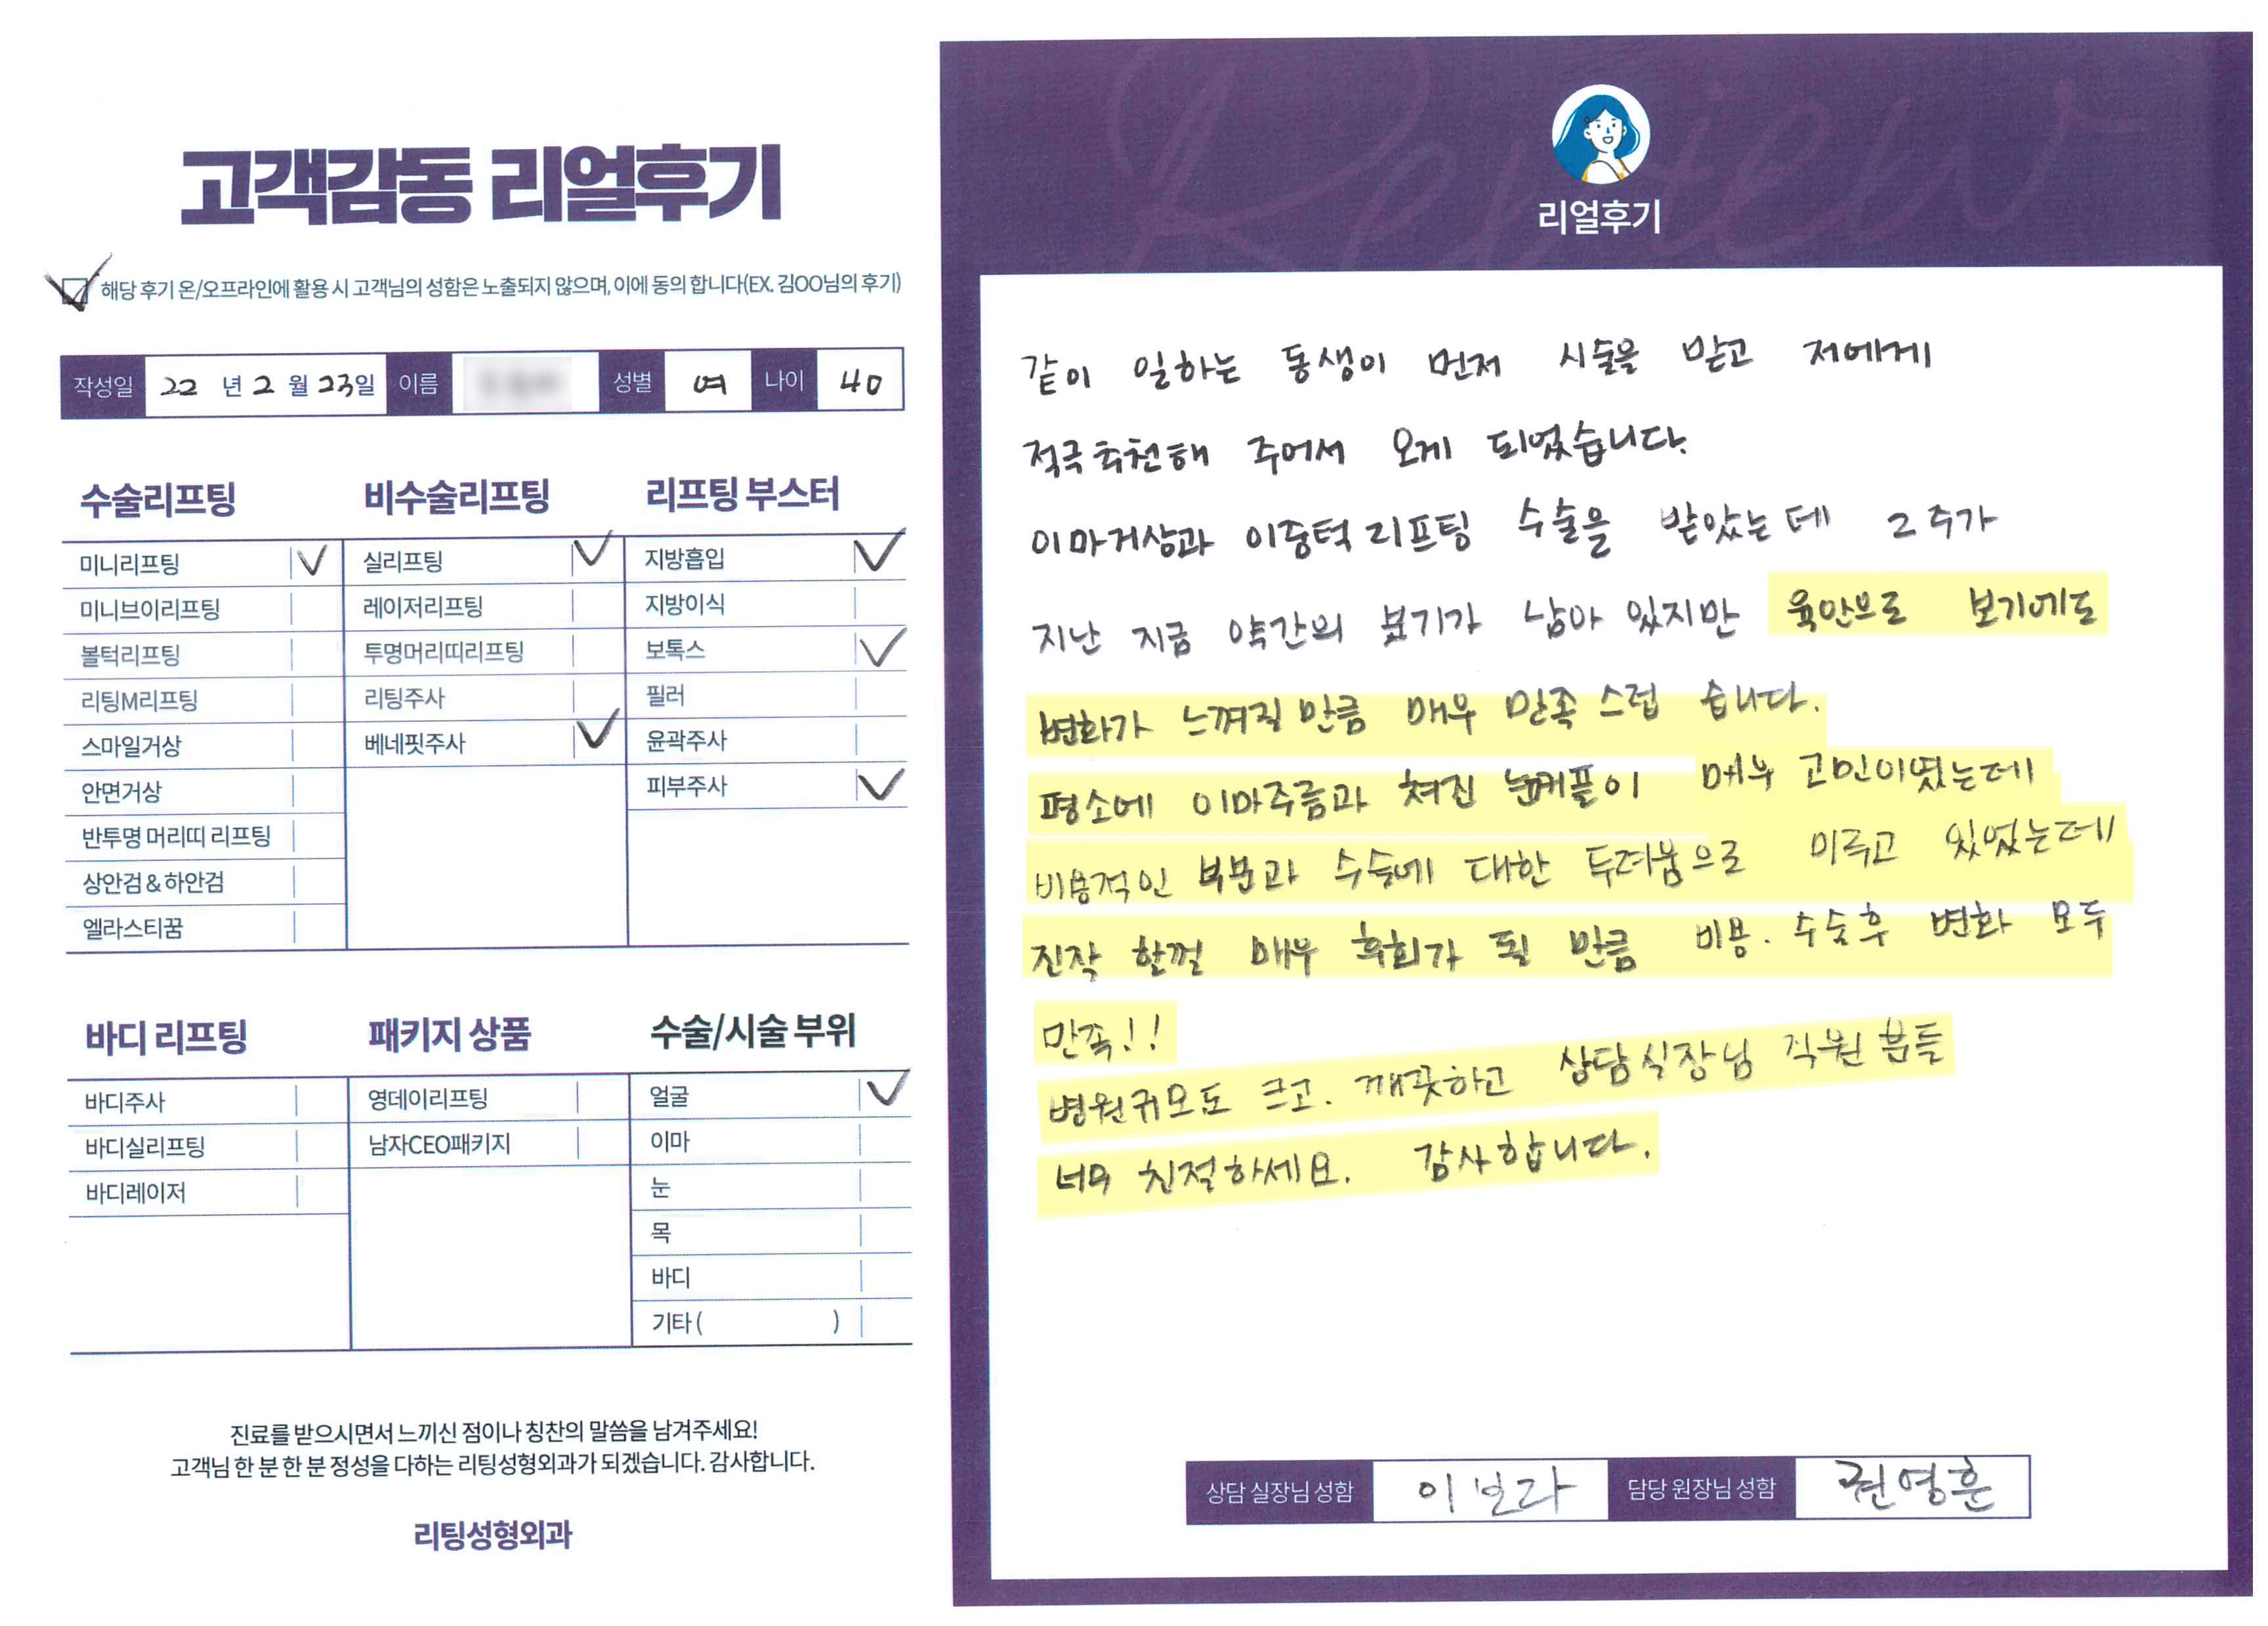 고객감동 리얼후기
해당 후기 온/오프라인에 활용 시 고객님의 성함은 노출되지 않으며, 이에 동의 합니다(EX. 김OO님의 후기)
작성일 22 년 2 월 23일 이름 성별 여 나이 40
수술리프팅
미니리프팅
미니브이리프팅
볼턱리프팅
리팅M리프팅
스마일거상
안면거상
반투명 머리띠 리프팅
상안검 & 하안검
엘라스티꿈
비수술리프팅
실리프팅
레이저리프팅
투명머리띠리프팅
리팅주사
베네핏주사
리프팅 부스터
지방흡입
지방이식
보톡스
필러
윤곽주사
피부주사
바디 리프팅
바디주사
바디실리프팅
바디레이저
패키지 상품
영데이리프팅
남자CEO패키지
수술/시술 부위
얼굴
이마
눈
목
바디
기타 ( )
진료를 받으시면서 느끼신 점이나 칭찬의 말씀을 남겨주세요!
고객님 한 분 한 분 정성을 다하는 리팅성형외과가 되겠습니다. 감사합니다.
리팅성형외과
Review
리얼후기
같이 일하는 동생이 먼저 시술을 받고 저에게
적극 추천해 주어서 오게 되었습니다.
이마거상과 이중턱 리프팅 수술을 받았는데 2주가
지난 지금 약간의 붓기가 남아 있지만 육안으로 보기에도
변화가 느껴질 만큼 매우 만족 스럽 습니다.
평소에 이마주름과 쳐진 눈꺼풀이 매우 고민이였는데
비용적인 부분과 수술에 대한 두려움으로 미루고 있었는데
진작 할껄 매우 후회가 될 만큼 비용. 수술후 변화 모두
만족!!
병원규모도 크고. 깨끗하고 상담실장님 직원 분들
너무 친절하세요. 감사합니다.
상담 실장님 성함 이보라 담당 원장님 성함 권영훈